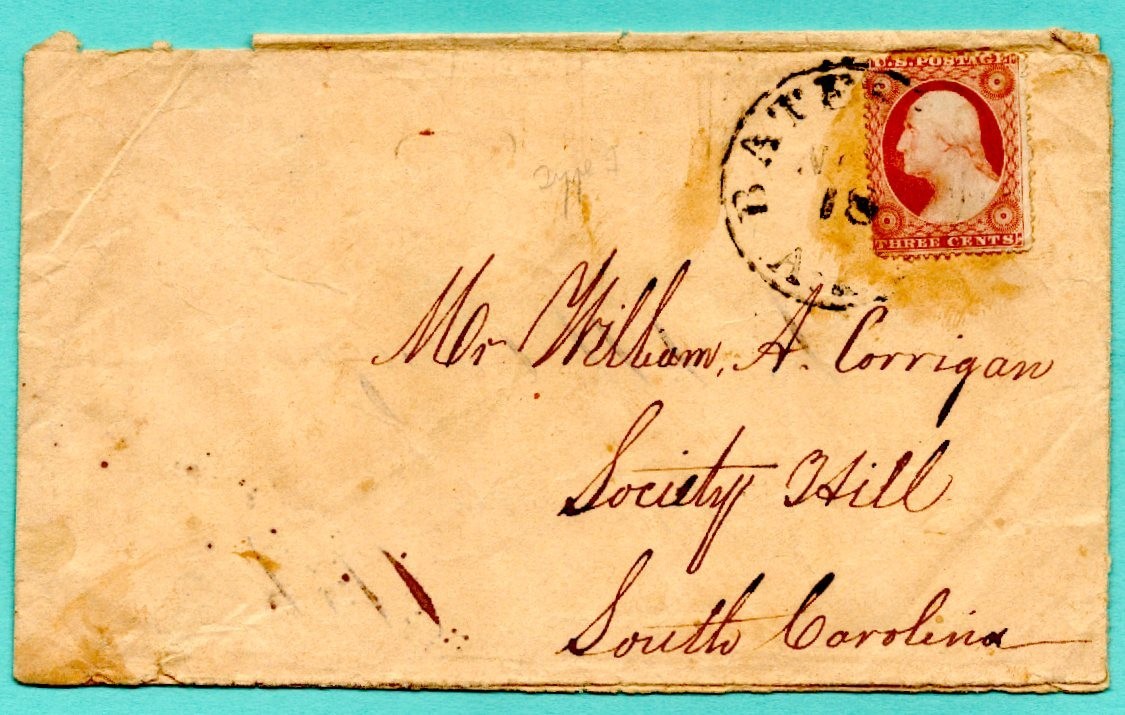 U.S. POSTAGE
THREE CENTS
BATE
18
type I
Mr William, A. Corrigan
Society Hill
South Carolina